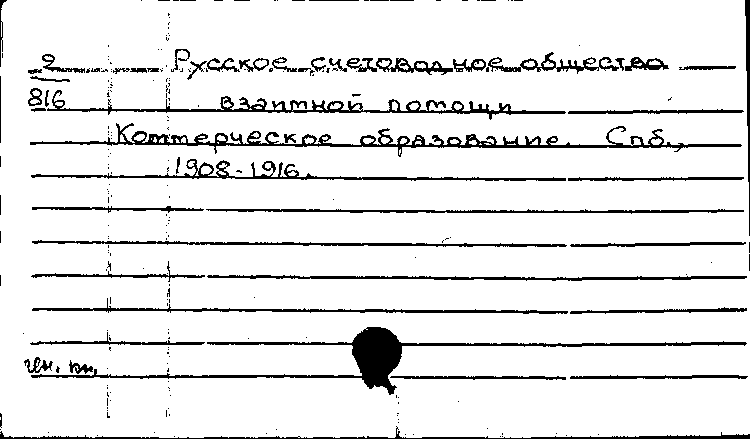 2 Русское счетоводное общество
816 взаимной помощи
Коммерческое образование. Спб.,
1908-1916.